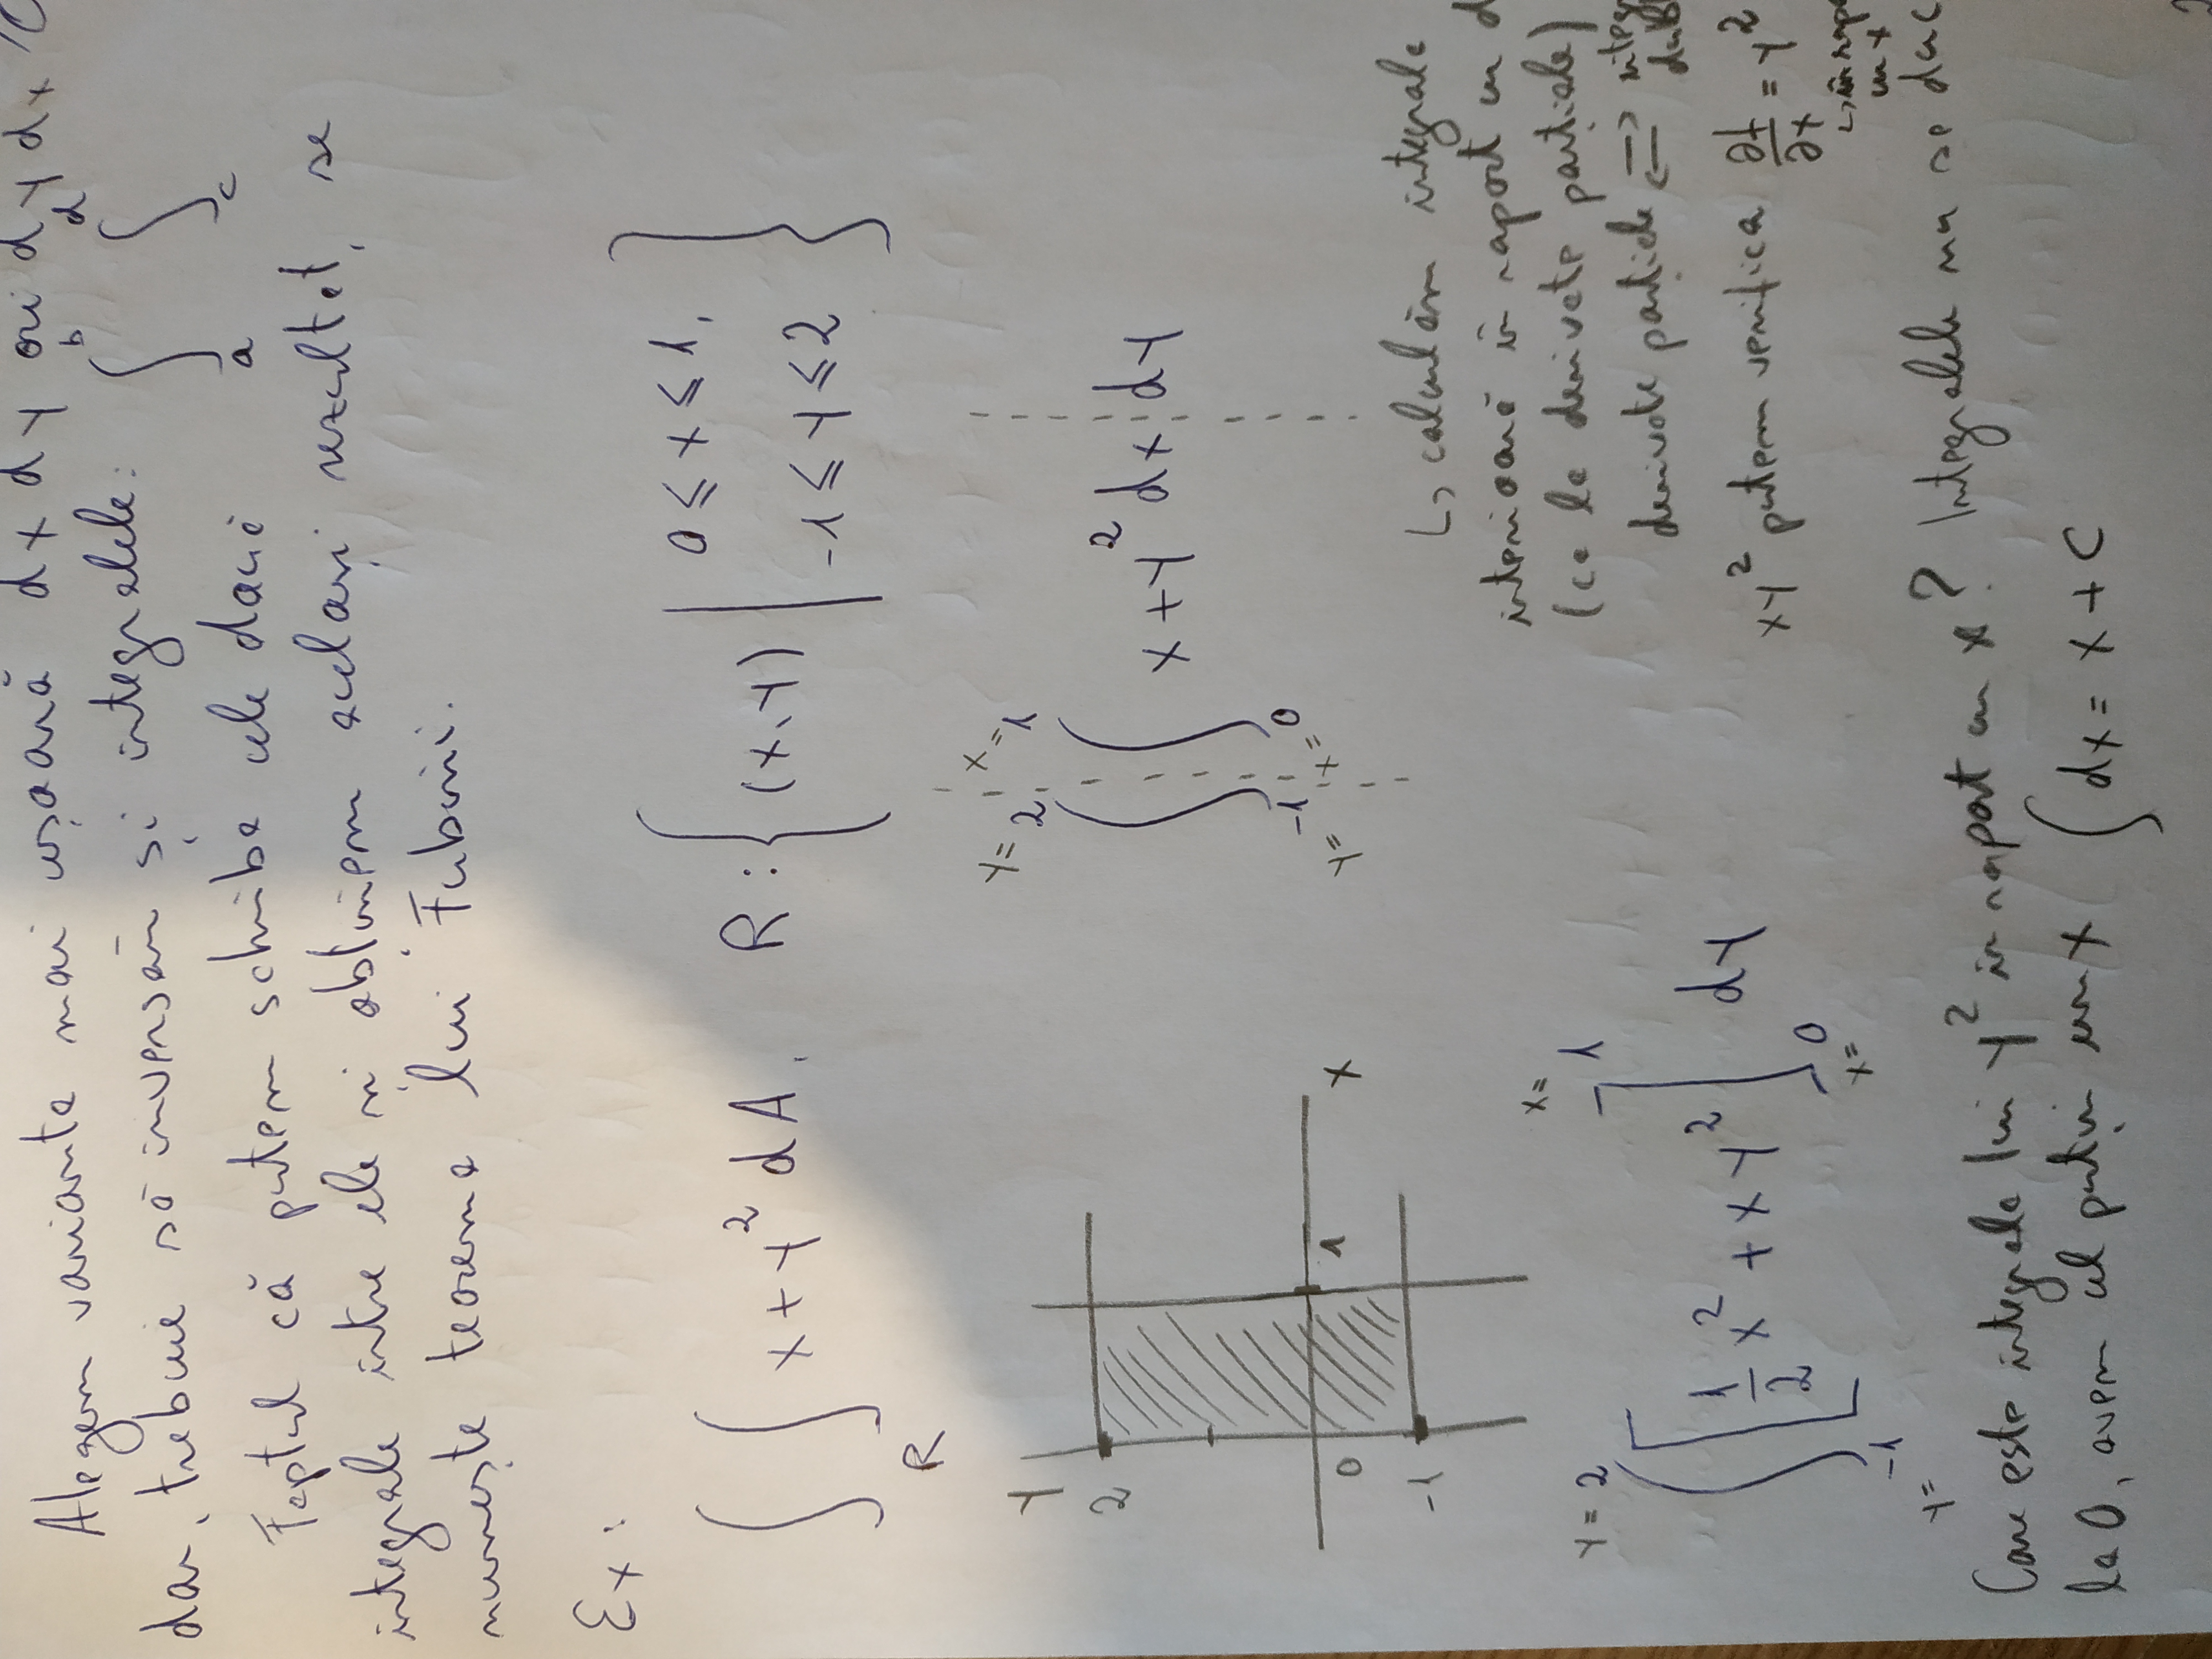 Alegem varianta mai ușoară dx dy ori dy dx
dar, trebuie să inversăm și integralele: ∫_a^b ∫_c^d
Faptul că putem schimba cele două
integrale între ele și obținem același rezultat, se
numește teorema lui Fubini.
Ex:
∫∫_R x+y² dA, R:{(x,y) | 0≤x≤1, -1≤y≤2}
Y
2
0
1
X
-1
∫_{y=-1}^{y=2} ∫_{x=0}^{x=1} x+y² dx dy
↳ calculăm integrala
interioară în raport cu d
(ca la derivate parțiale)
derivate parțiale ⇌ integr
dub
∫_{y=-1}^{y=2} [1/2 x² + xy²]_{x=0}^{x=1} dy
xy² putem verifica ∂f/∂x = y²
↳ în rapo
cu x
Care este integrala lui y² în raport cu x? Integralele nu se duc
la 0, avem cel puțin un x ∫dx = x + C